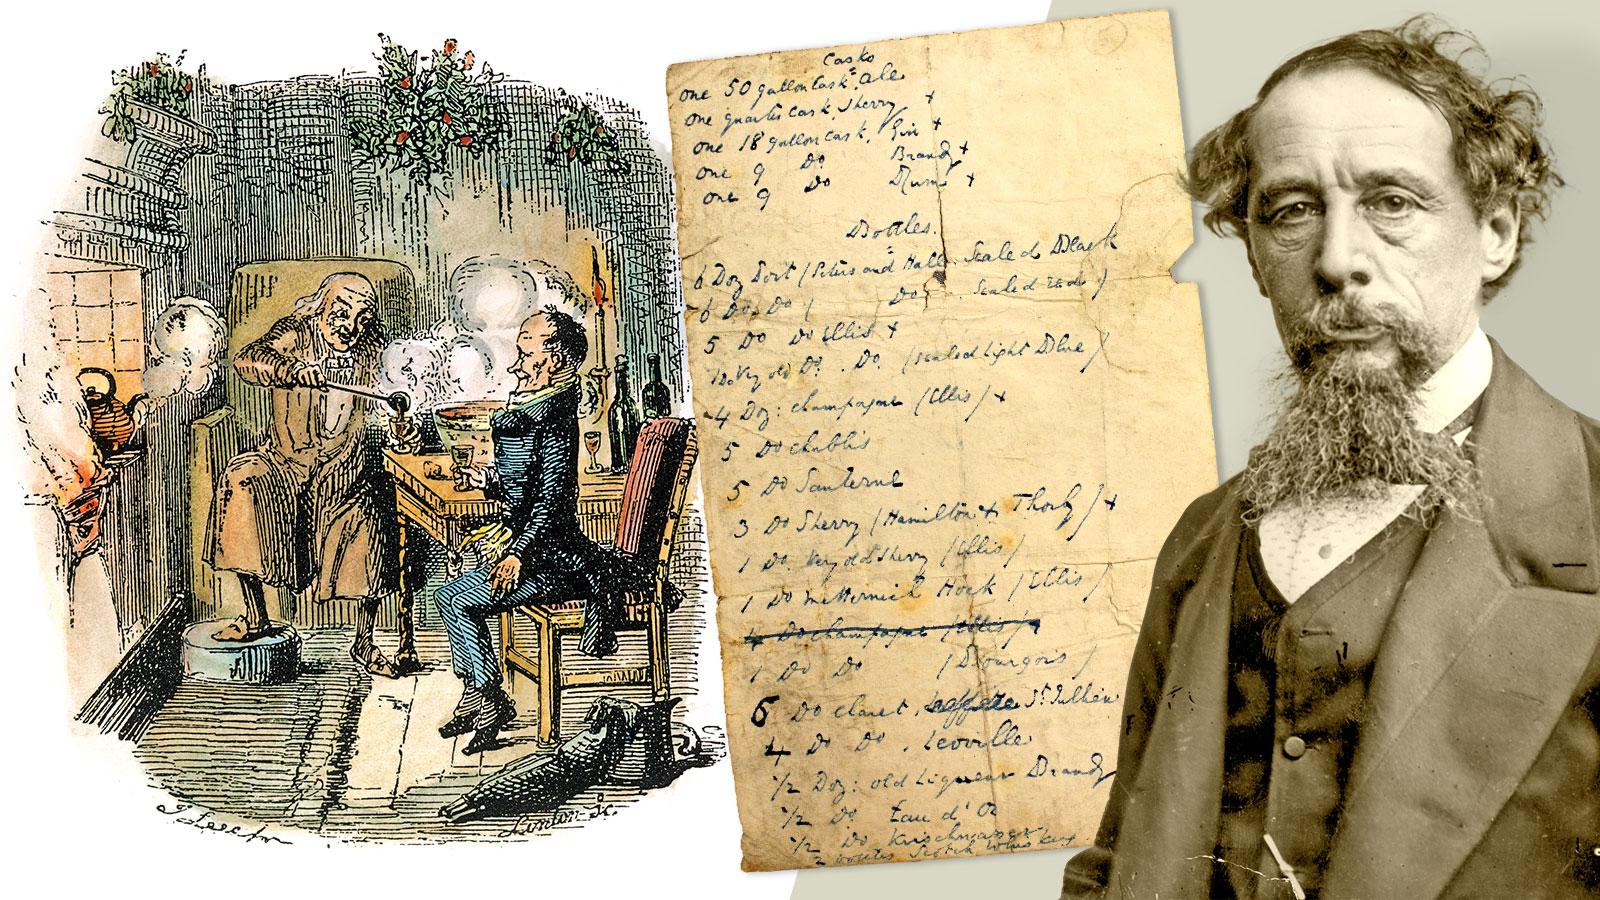 J Leech
London Sc.
Casks
one 50 gallon Cask, Ale
one quarter cask, Sherry +
one 18 gallon cask, Gin +
one 9 Do Brandy +
one 9 Do Rum +
Bottles.
6 Doz Port (Peters and Hall. Sealed Black
6 Do Do ( Do . Sealed red )
5 Do Do Ellis +
very old Do . Do (sealed light Blue)
4 Doz: champagne (Ellis) +
5 Do chablis
5 Do Sauterne
3 Do Sherry (Hamilton & Thorly) +
1 Do Very old Sherry (Ellis)
1 Do Metternich Hock (Ellis)
4 Do champagne (Ellis) +
1 Do Do (Bourgois)
6 Do claret, Laffitte St. Jullien
4 Do Do . Leoville
1/2 Doz: old Liqueur Brandy
1/2 Do Eau d' Or
1/2 Do Kirschwasser
2 bottles Scotch Whiskey